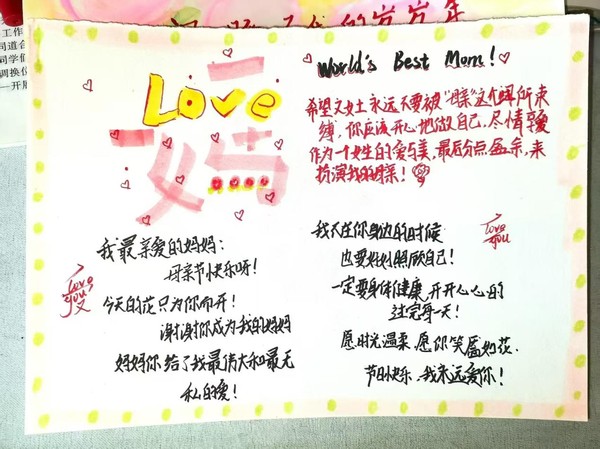 工作
司道合
同学们
调换位
一开展
的岁岁年
Love
妈
World's Best Mom!
希望文女士永远不要被"母亲"这个词所束
缚,你应该开心地做自己,尽情享受
作为一个女生的爱与美,最后分点盈余,来
扮演我的母亲!
我最亲爱的妈妈:
母亲节快乐呀!
今天的花只为你而开!
谢谢你成为我的妈妈
妈妈你给了我最伟大和最无
私的爱!
love you!
我不在你身边的时候
也要好好照顾自己!
一定要身体健康,开开心心的
过完每一天!
愿时光温柔,愿你笑靥如花.
节日快乐,我永远爱你!
love
you